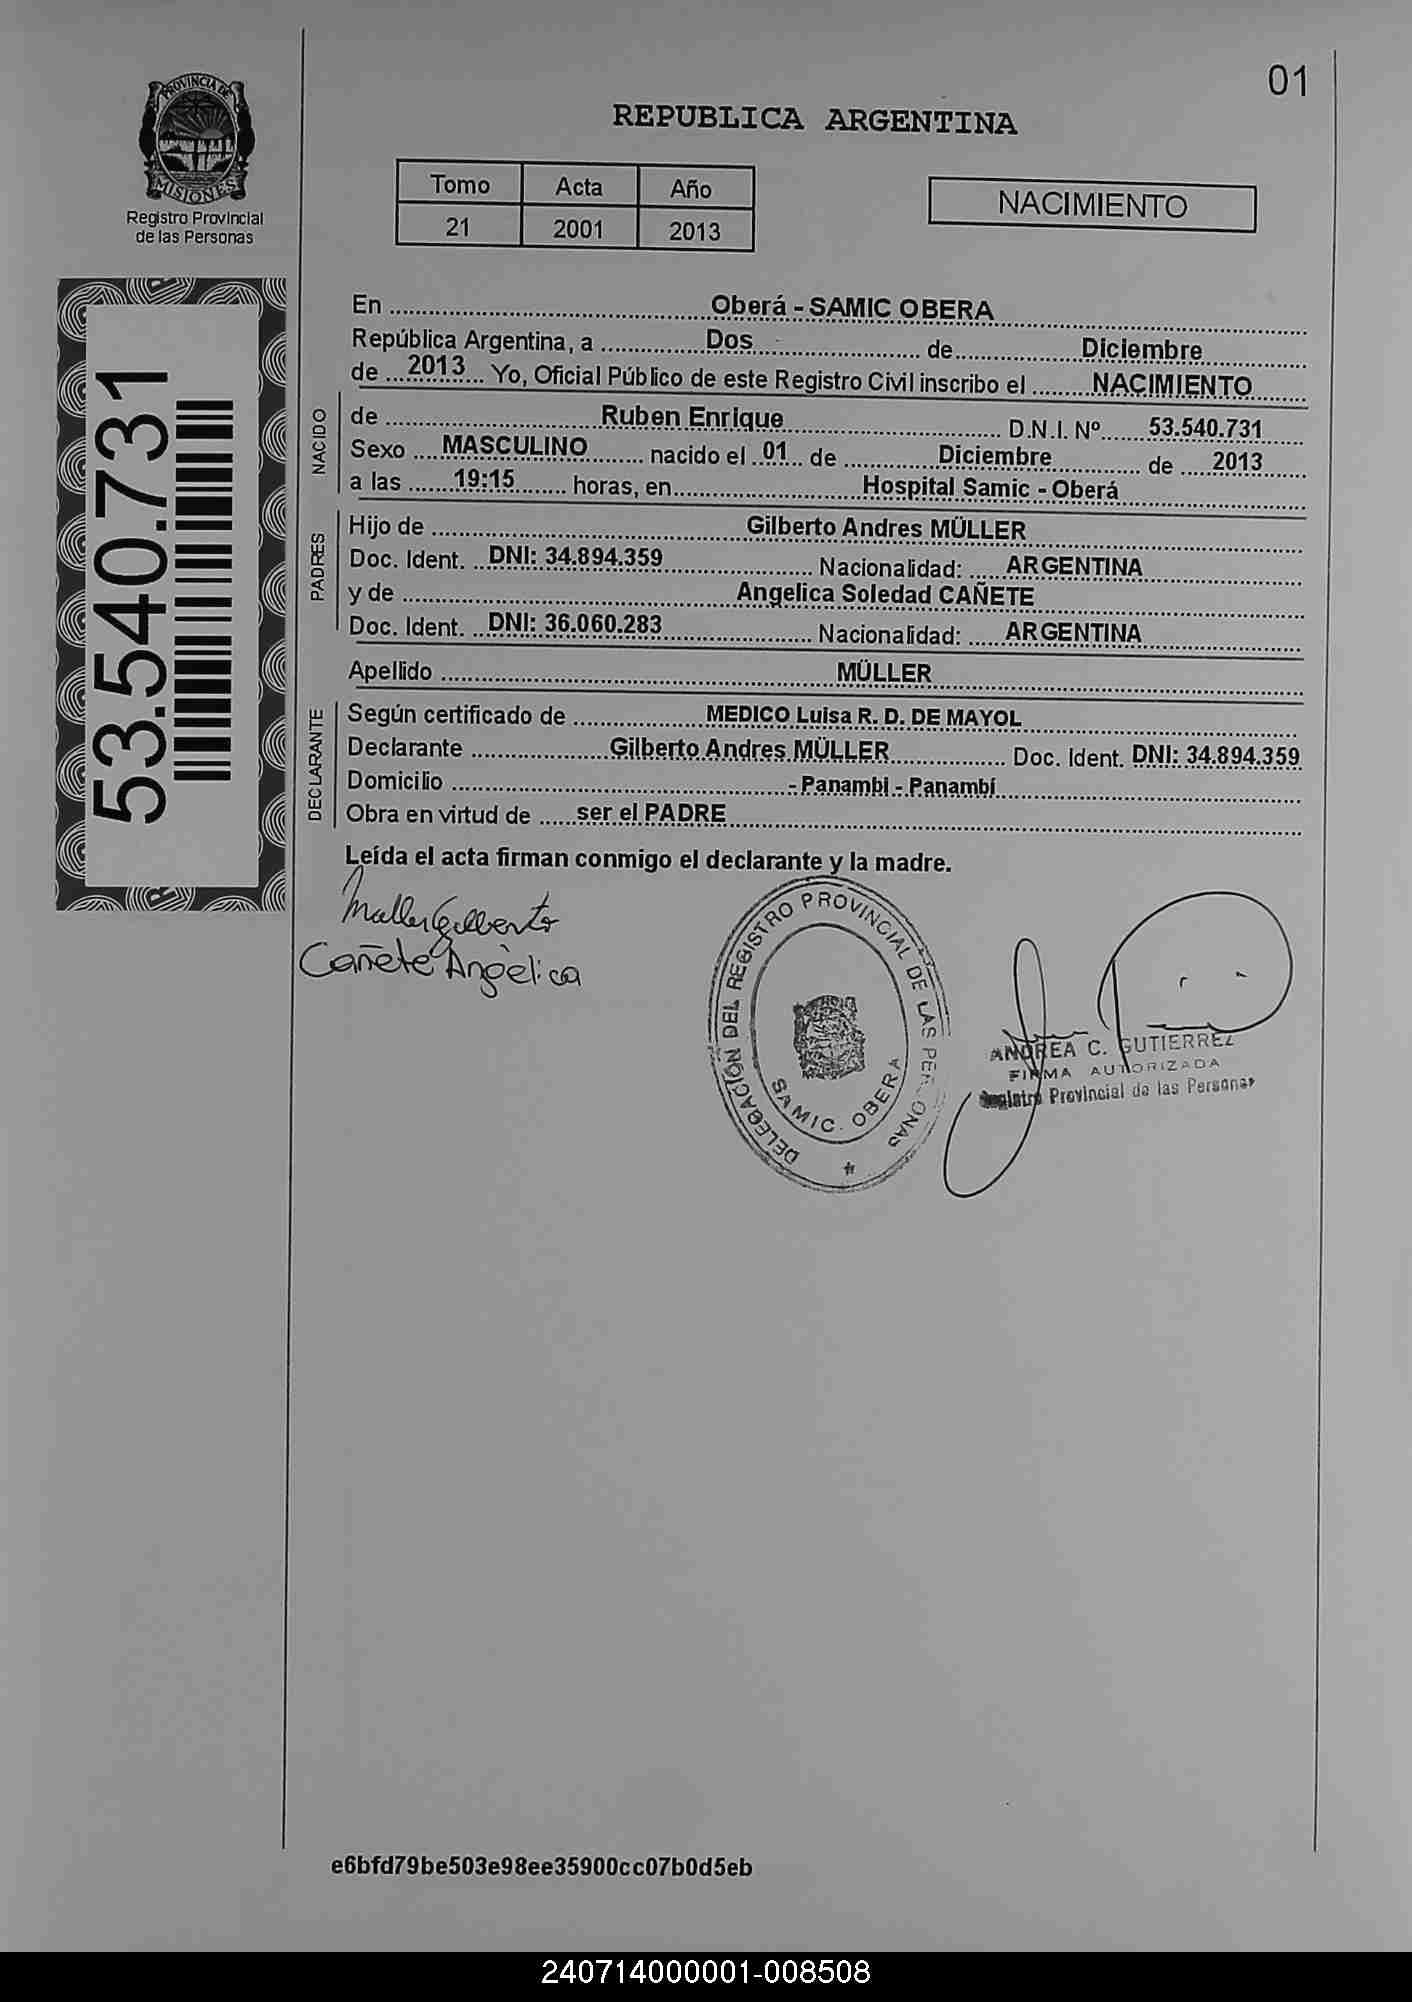 01
REPUBLICA ARGENTINA
PROVINCIA DE
MISIONES
Registro Provincial
de las Personas
Tomo Acta Año
21 2001 2013
NACIMIENTO
53.540.731
En Oberá - SAMIC OBERA
República Argentina, a Dos de Diciembre
de 2013 Yo, Oficial Público de este Registro Civil inscribo el NACIMIENTO
NACIDO
de Ruben Enrique D.N.I. Nº 53.540.731
Sexo MASCULINO nacido el 01 de Diciembre de 2013
a las 19:15 horas, en Hospital Samic - Oberá
PADRES
Hijo de Gilberto Andres MÜLLER
Doc. Ident. DNI: 34.894.359 Nacionalidad: ARGENTINA
y de Angelica Soledad CAÑETE
Doc. Ident. DNI: 36.060.283 Nacionalidad: ARGENTINA
Apellido MÜLLER
DECLARANTE
Según certificado de MEDICO Luisa R. D. DE MAYOL
Declarante Gilberto Andres MÜLLER Doc. Ident. DNI: 34.894.359
Domicilio - Panambi - Panambí
Obra en virtud de ser el PADRE
Leída el acta firman conmigo el declarante y la madre.
Muller Gilberto
Cañete Angèlica
DELEGACIÓN DEL REGISTRO PROVINCIAL DE LAS PERSONAS
SAMIC. OBERA
ANDREA C. GUTIERREZ
FIRMA AUTORIZADA
Registro Provincial de las Personas
e6bfd79be503e98ee35900cc07b0d5eb
240714000001-008508